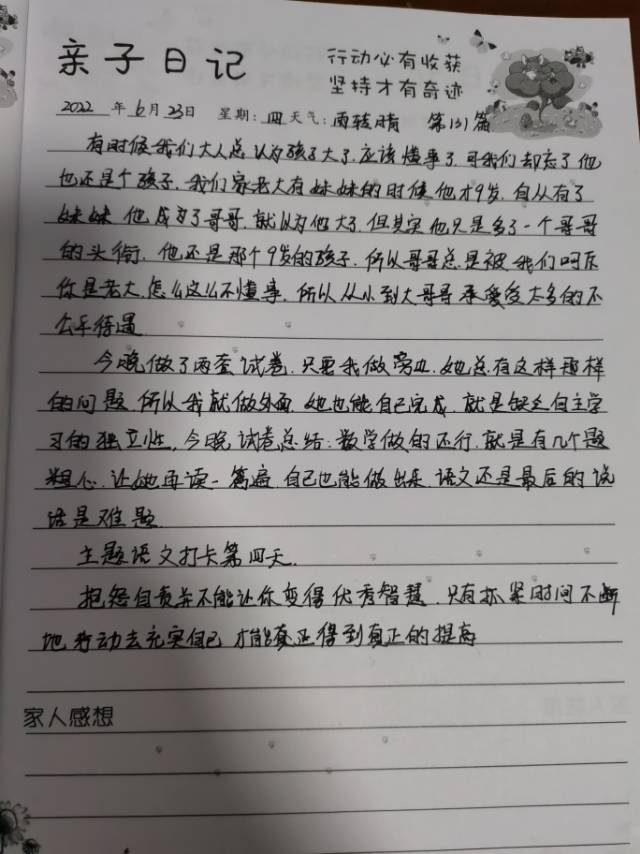 亲子日记
行动必有收获
坚持才有奇迹
2022 年 6 月 23 日 星期: 四 天气: 雨转晴 第131篇
有时候我们大人总认为孩子大了.应该懂事了.可我们却忘了他
也还是个孩子.我们家老大有妹妹的时候他才9岁.自从有了
妹妹他成为了哥哥.就以为他大了.但其实他只是多了一个哥哥
的头衔.他还是那个9岁的孩子.所以哥哥总是被我们呵斥
你是老大.怎么这么不懂事.所以从小到大哥哥承受太多的不
公平待遇
今晚做了两套试卷.只要我做旁边.她总有这样那样
的问题.所以我就做外面.她也能自己完成.就是缺乏自主学
习的独立性.今晚试卷总结:数学做的还行.就是有几个题
粗心.让她再读一篇遍.自己也能做出来.语文还是最后的说
话是难题.
主题语文打卡第四天.
抱怨自责并不能让你变得优秀智慧.只有抓紧时间不断
地行动去充实自己才能真正得到真正的提高
家人感想